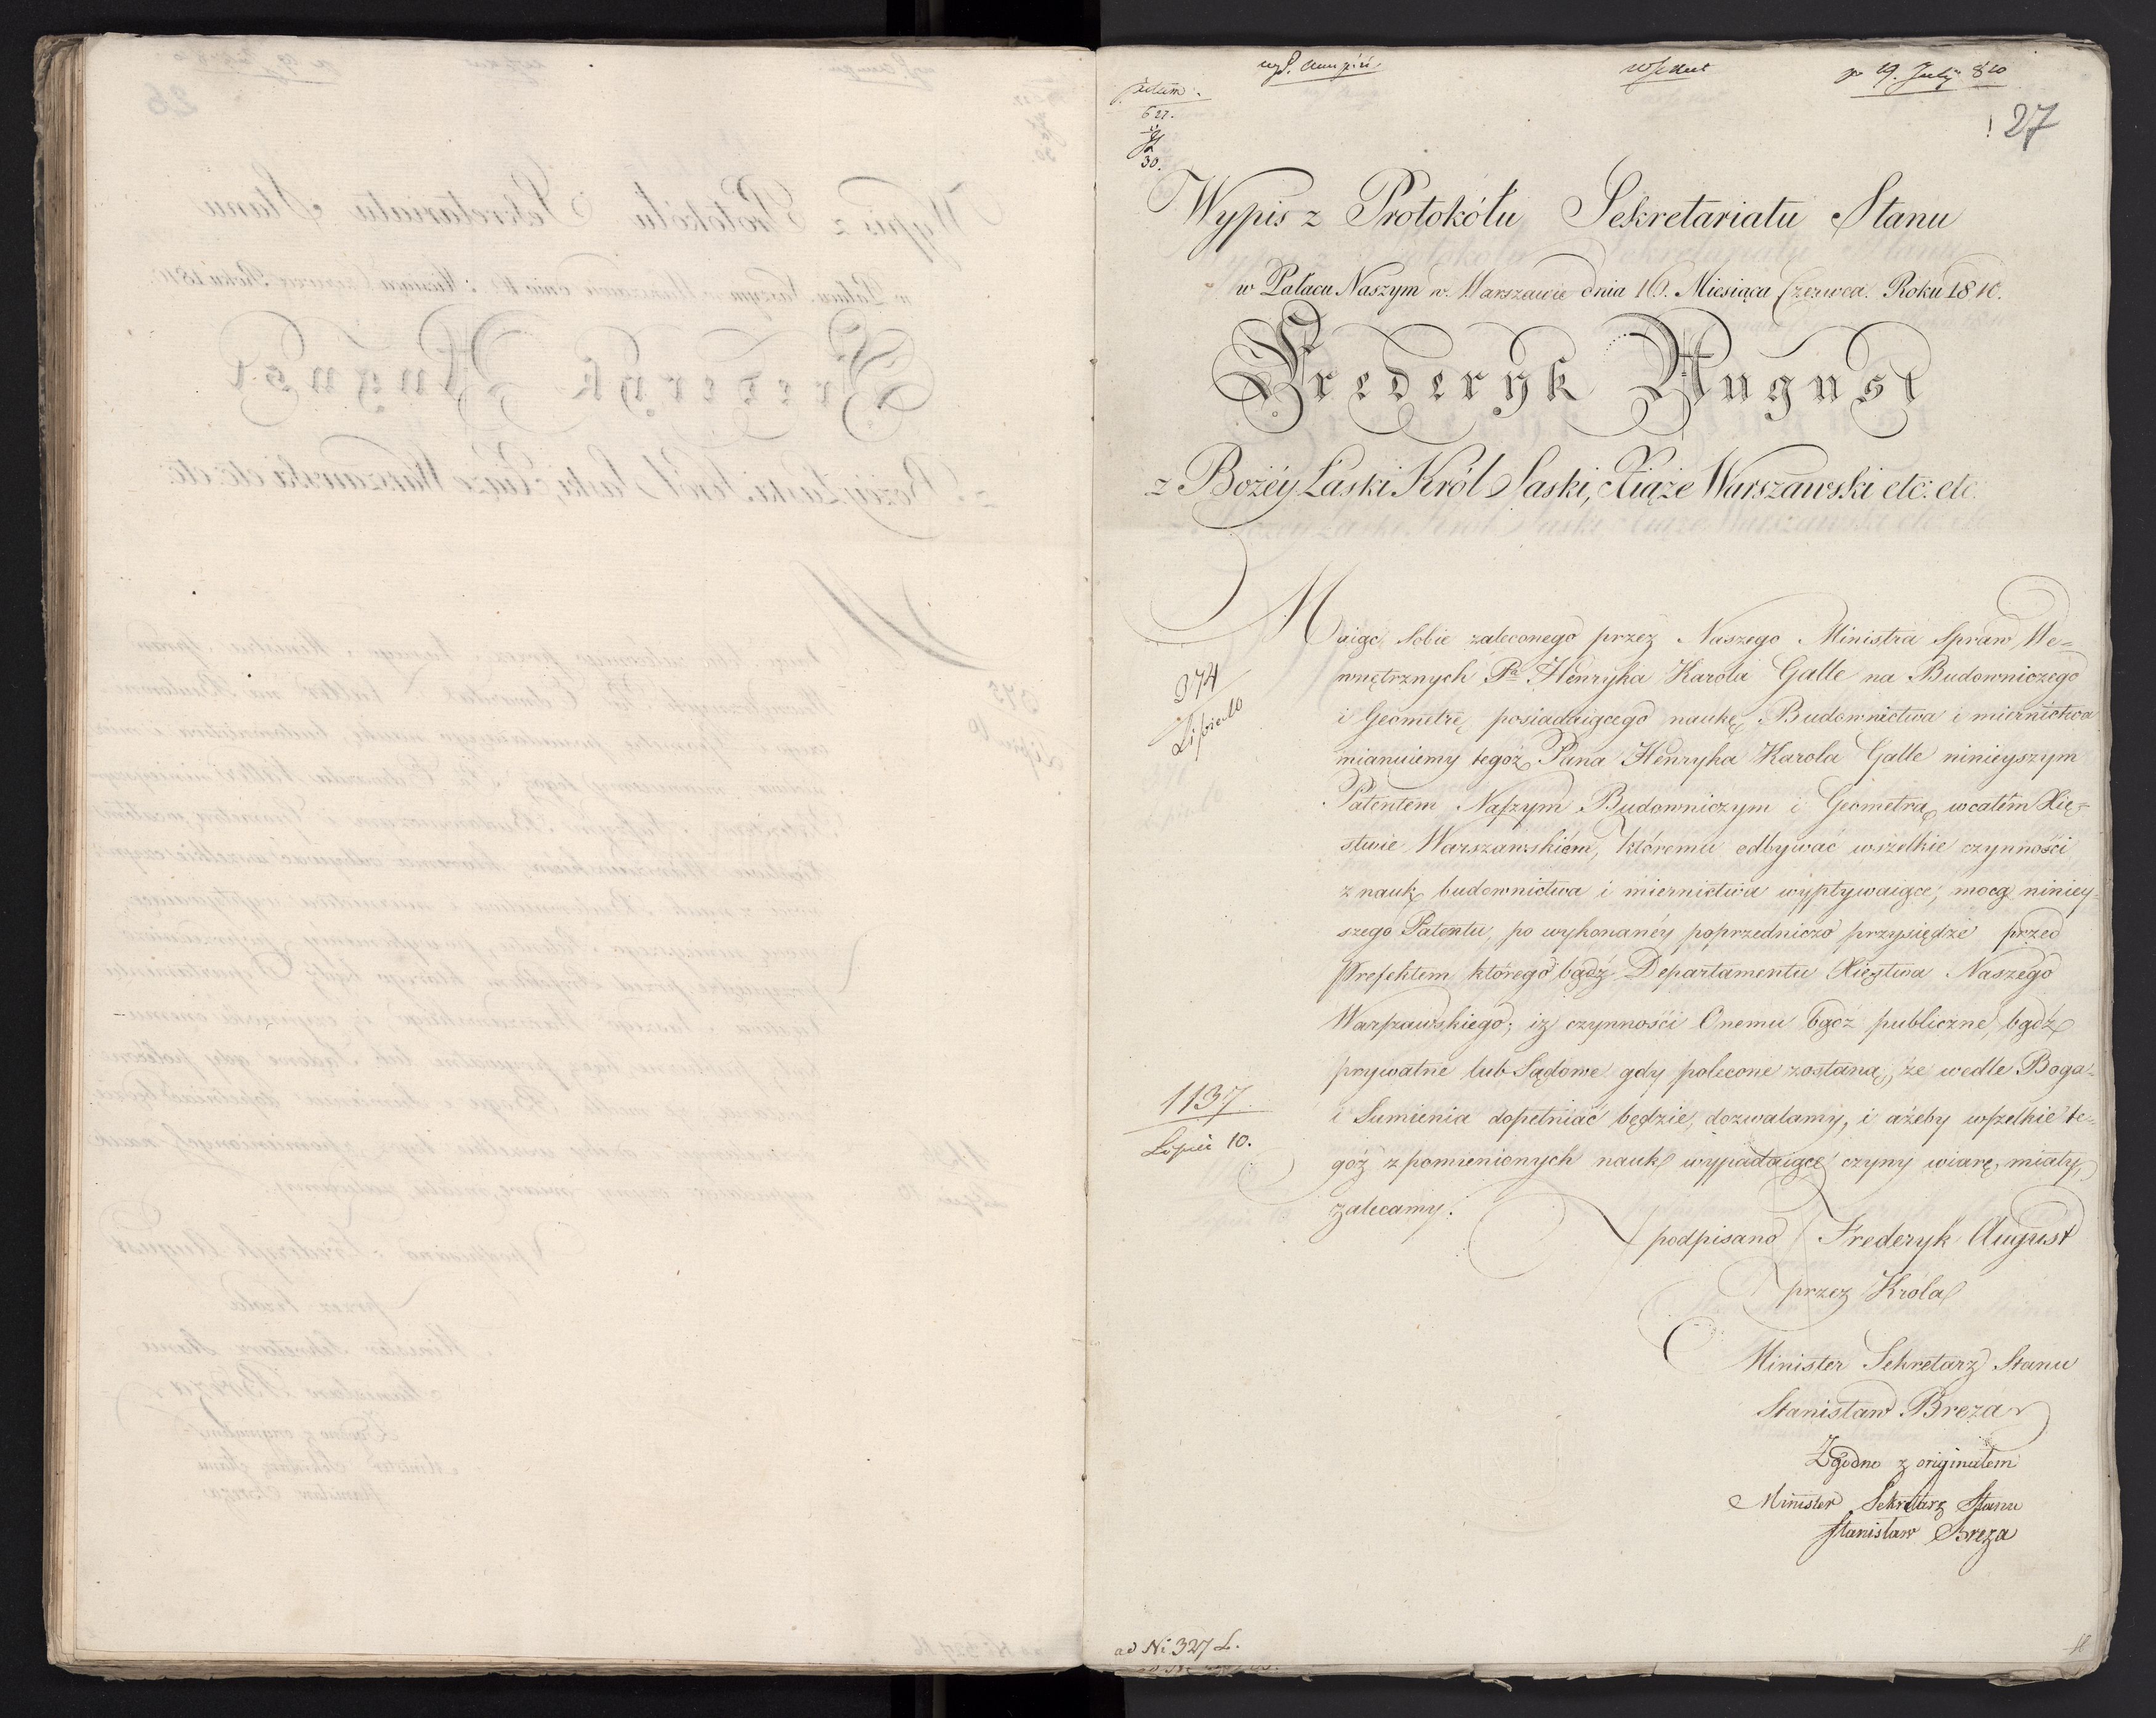 pr 19. July 810
27
627.
30.
Wypis z Protokółu Sekretariatu Stanu
w Pałacu Naszym w Warszawie dnia 16. Miesiąca Czerwca. Roku 1810.
Frederyk August
z Bożéy Łaski Król Saski, Xiąże Warszawski etc: etc.
Maiąc Sobie zaleconego przez Naszego Ministra Spraw We-
wnętrznych Pa Henryka Karola Galle na Budowniczego
i Geometrę, posiadaiącego naukę Budownictwa i miernictwa
mianuiemy tegoż Pana Henryka Karola Galle ninieyszym
Patentem Naszym Budowniczym i Geometrą w całém Xię-
stwie Warszawskiém, któremu odbywać wszelkie czynności
z nauk budownictwa i miernictwa wypływaiące, mocą niniey-
szego Patentu, po wykonanéy poprzedniczo przysiędze przed
Prefektem którego bądź Departamentu Xięstwa Naszego
Warszawskiego, iż czynności Onemu bądź publiczne, bądź
prywatne lub Sądowe gdy polecone zostaną, że wedle Boga
i Sumienia dopełniać będzie, dozwalamy, i ażeby wszelkie te-
goż z pomienionych nauk wypadaiące czyny wiarę miały,
zalecamy.
podpisano / Frederyk August
przez Króla
Minister Sekretarz Stanu
Stanisław Breza
Zgodno z originałem
Minister Sekretarz Stanu
Stanisław Breza
374
Lipiec 10
1137.
Lipiec 10.
ad No 327 L.